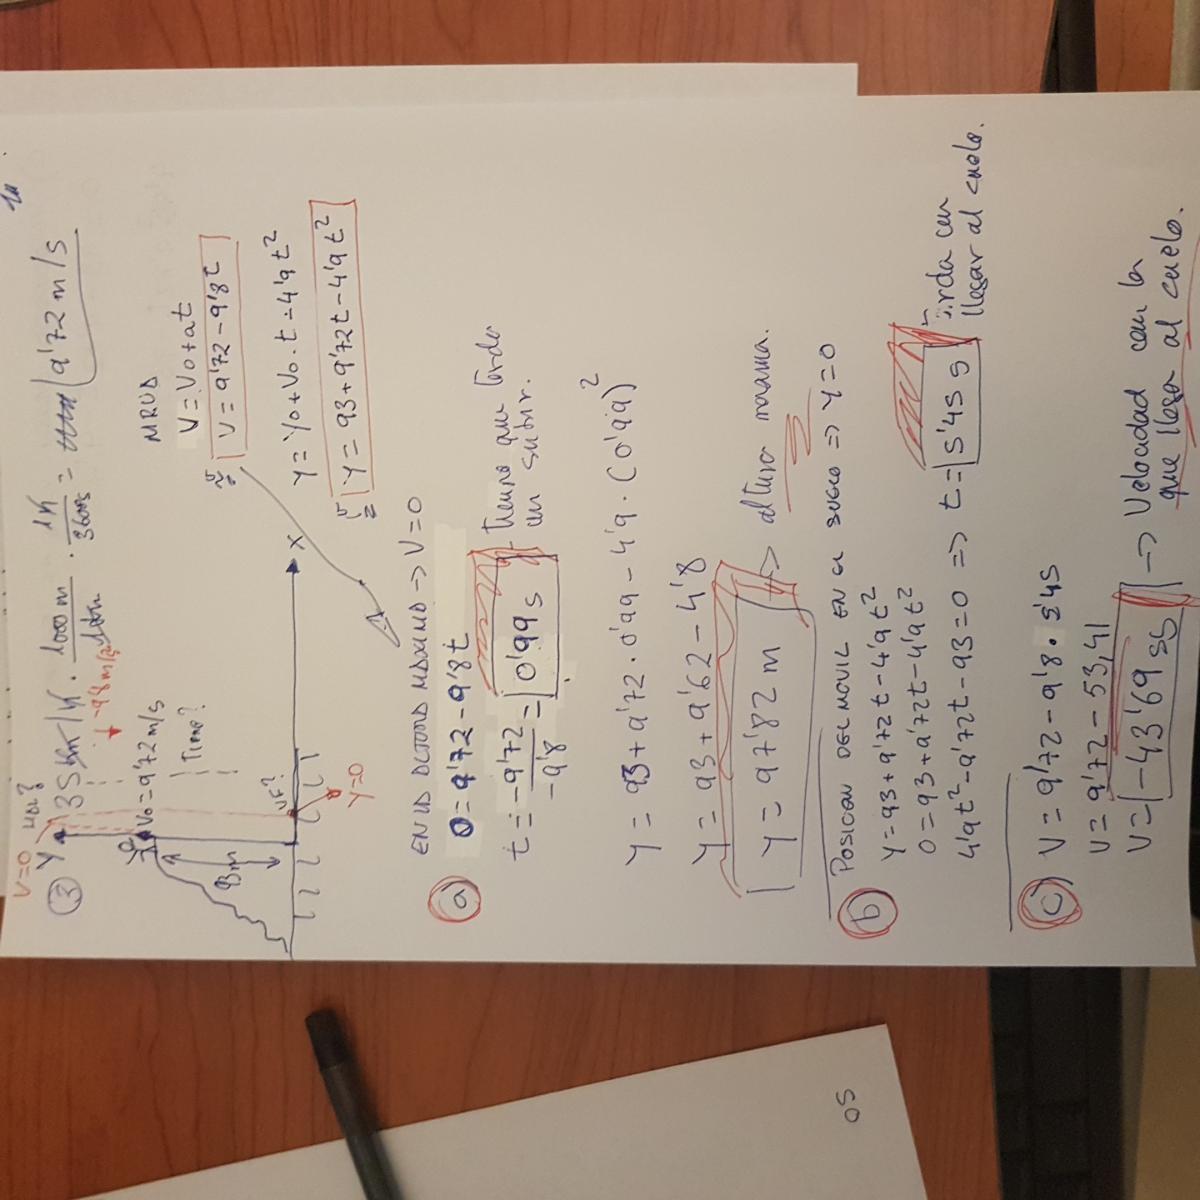 1a
③ 35 km/h · 1000 m / 1 km · 1h / 3600s = 9'72 m/s
V=0
Y
-9'8 m/s²
V₀=9'72 m/s
93m
VF?
Y=0
X
MRUA
V=V₀+at
V=9'72-9'8t
Y=Y₀+V₀·t-4'9t²
Y=93+9'72t-4'9t²
=> V=0
a) 0=9'72-9'8t
t=-9'72/-9'8=0'99 s tiempo que tarda
en subir.
Y=93+9'72·0'99-4'9·(0'99)²
Y=93+9'62-4'8
Y=97'82 m => altura maxima.
b) POSICION DEL MOVIL EN EL SUELO => Y=0
Y=93+9'72t-4'9t²
0=93+9'72t-4'9t²
4'9t²-9'72t-93=0 => t=5'45 s tarda en
llegar al suelo.
c) V=9'72-9'8·5'45
V=9'72-53,41
V=-43'69 -> Velocidad con la
que llega al suelo.
OS